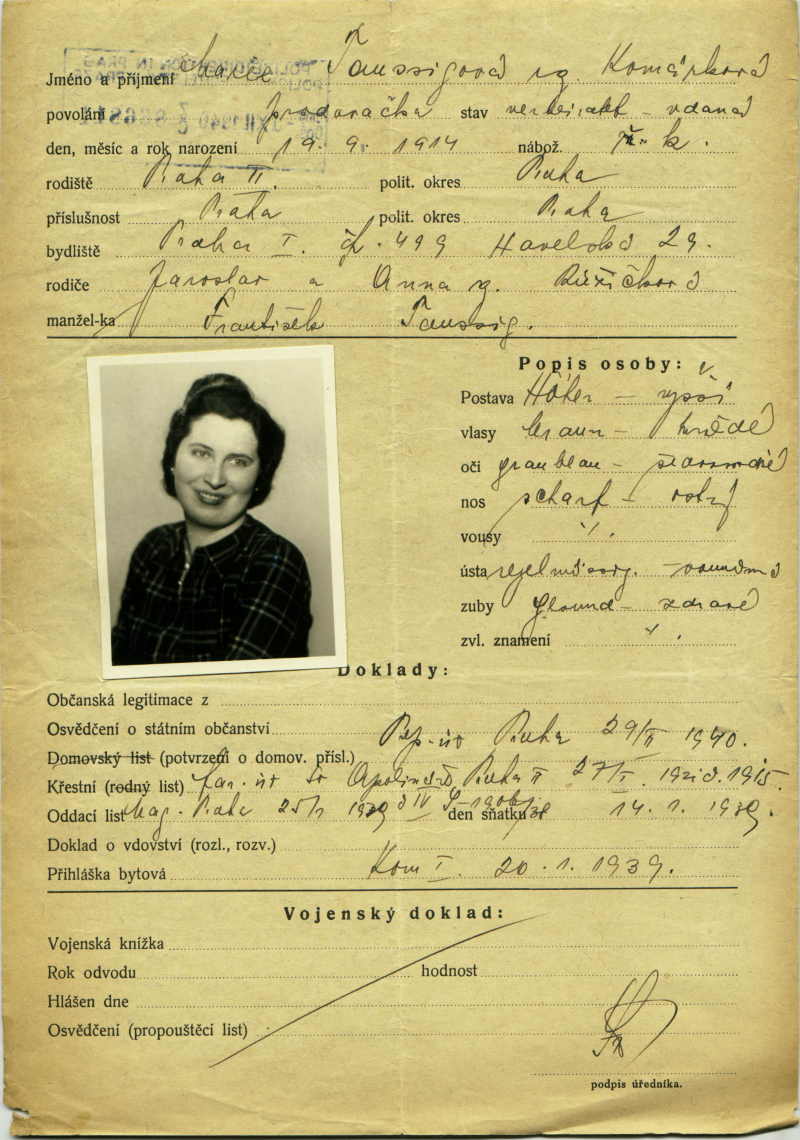 Jméno a příjmení Marie Taussigová rz. Komárková
povolání prodavačka stav verheiratet - vdaná
den, měsíc a rok narození 19. 9. 1914 nábož. ř. k.
rodiště Praha II. polit. okres Praha
příslušnost Praha polit. okres Praha
bydliště Praha I. čp. 499 Havelská 29.
rodiče Jaroslav a Anna r. Růžičková
manžel-ka František Taussig.
Popis osoby:
Postava Höher - vyšší
vlasy braun - hnědé
oči graublau - šedomodré
nos scharf - ostrý
vousy
ústa regelmässig. - souměrná
zuby gesund - zdravé
zvl. znamení
Doklady:
Občanská legitimace z
Osvědčení o státním občanství
Domovský list (potvrzení o domov. přísl.) Praha 29/II 1940.
Křestní (rodný list) far. úř. sv. Apolináře Praha II 27/I. 1915.
Oddací list Mag. Praha 25/I 1939 den sňatku 14. 1. 1939.
Doklad o vdovství (rozl., rozv.)
Přihláška bytová Kom I. 20. 1. 1939.
Vojenský doklad:
Vojenská knížka
Rok odvodu hodnost
Hlášen dne
Osvědčení (propouštěcí list)
podpis úředníka.